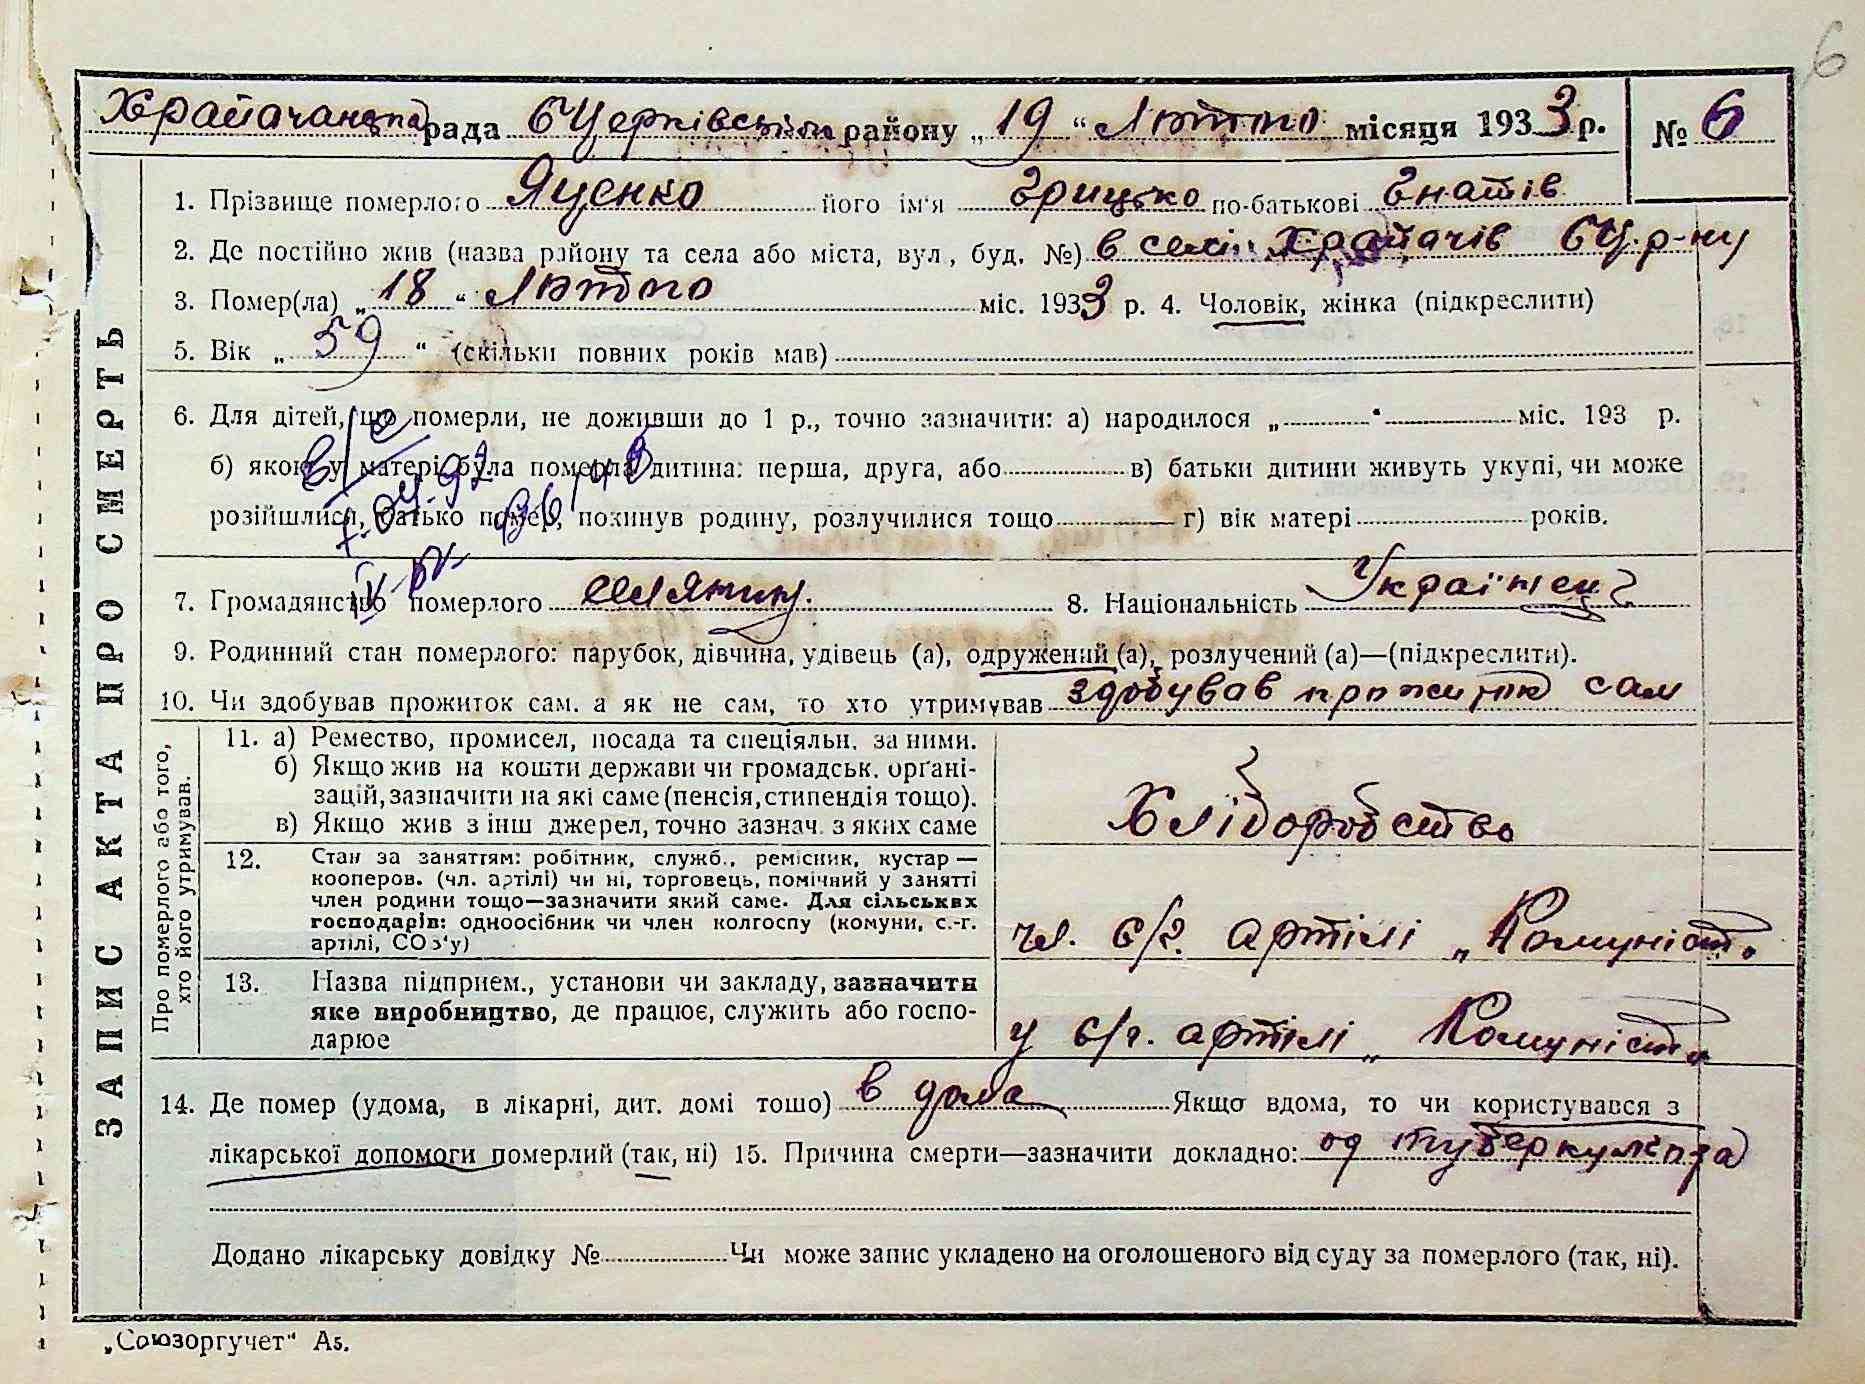 6
Храпачанська рада БЦерківського району „19" Лютого місяця 1933 р. № 6
1. Прізвище померлого Яценко його ім'я Грицько по-батькові Гнатів
2. Де постійно жив (назва району та села або міста, вул, буд. №) в селі Храпачів БЦ.р-ну
3. Помер(ла) „18" Лютого міс. 1933 р. 4. Чоловік, жінка (підкреслити)
5. Вік „59" (скільки повних років мав)
6. Для дітей, що померли, не доживши до 1 р., точно зазначити: а) народилося „ " міс. 193 р.
б) якою у матері була померла дитина: перша, друга, або в) батьки дитини живуть укупі, чи може
розійшлися, батько помер, покинув родину, розлучилися тощо г) вік матері років.
7. Громадянство померлого селянин. 8. Національність Українец
9. Родинний стан померлого: парубок, дівчина, удівець (а), одружений (а), розлучений (а)—(підкреслити).
10. Чи здобував прожиток сам. а як не сам, то хто утримував здобував прожиток сам
ЗАПИС АКТА ПРО СМЕРТЬ
Про померлого або того, хто його утримував.
11. а) Ремество, промисел, посада та спеціяльн. за ними.
б) Якщо жив на кошти держави чи громадськ. органі-
зацій, зазначити на які саме (пенсія, стипендія тощо).
в) Якщо жив з інш джерел, точно зазнач. з яких саме
Хліборобство
12. Стан за заняттям: робітник, служб., ремісник, кустар —
кооперов. (чл. артілі) чи ні, торговець, помічний у занятті
член родини тощо—зазначити який саме. Для сільськвх
господарів: одноосібник чи член колгоспу (комуни, с.-г.
артілі, СОз'у)
чл. с/г. артілі „Комуніст"
13. Назва підприєм., установи чи закладу, зазначити
яке виробництво, де працює, служить або госпо-
дарює
у с/г. артілі „Комуніст"
14. Де помер (удома, в лікарні, дит. домі тощо) в дома Якщо вдома, то чи користувався з
лікарської допомоги померлий (так, ні) 15. Причина смерти—зазначити докладно: од туберкульоза
Додано лікарську довідку № Чи може запис укладено на оголошеного від суду за померлого (так, ні).
„Союзоргучет" А5.